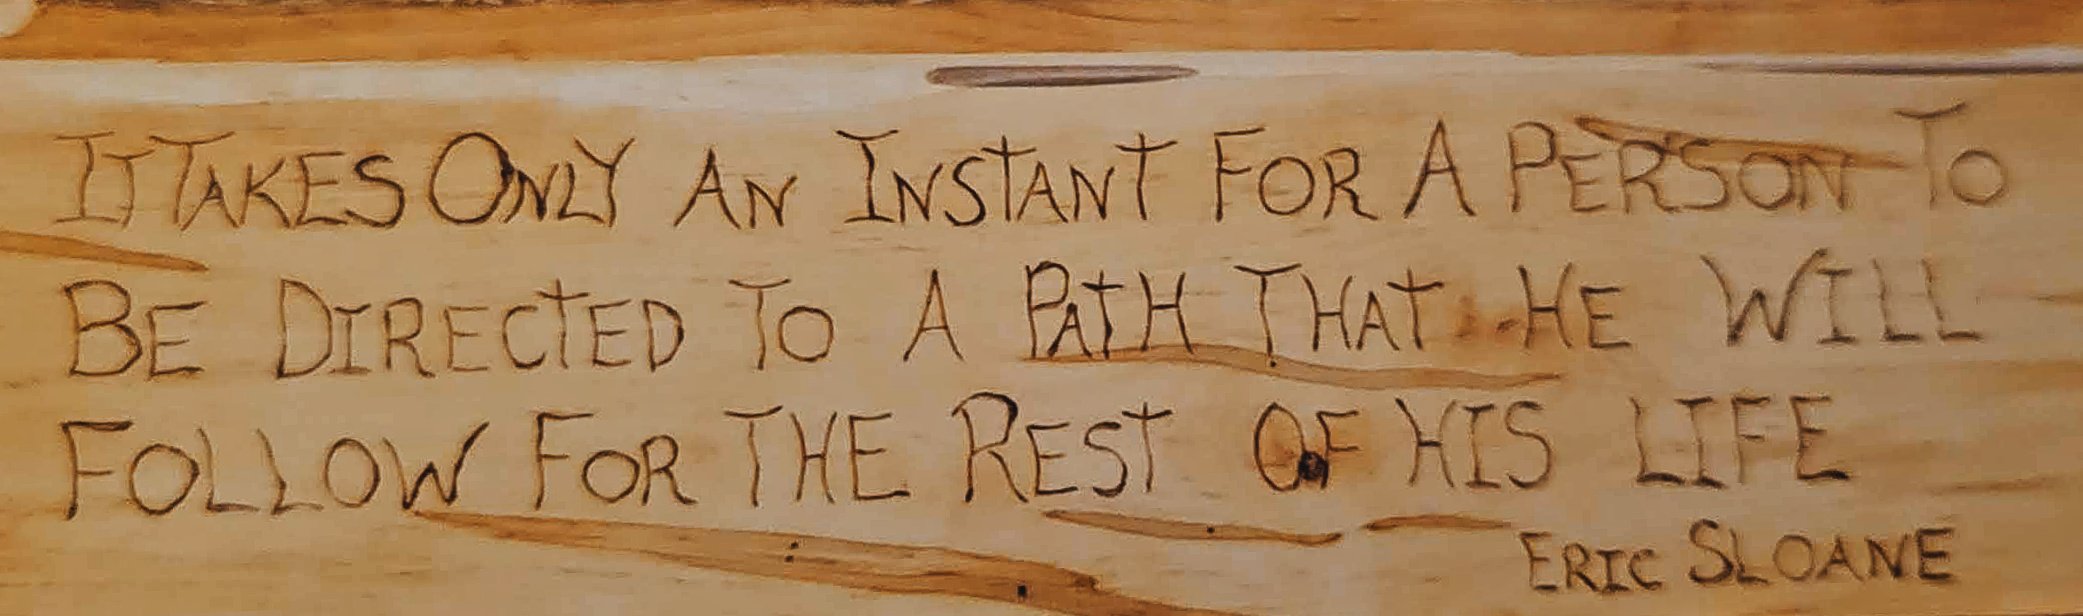 It Takes Only An Instant For A Person To
Be Directed To A Path That He Will
Follow For The Rest Of His Life
Eric Sloane